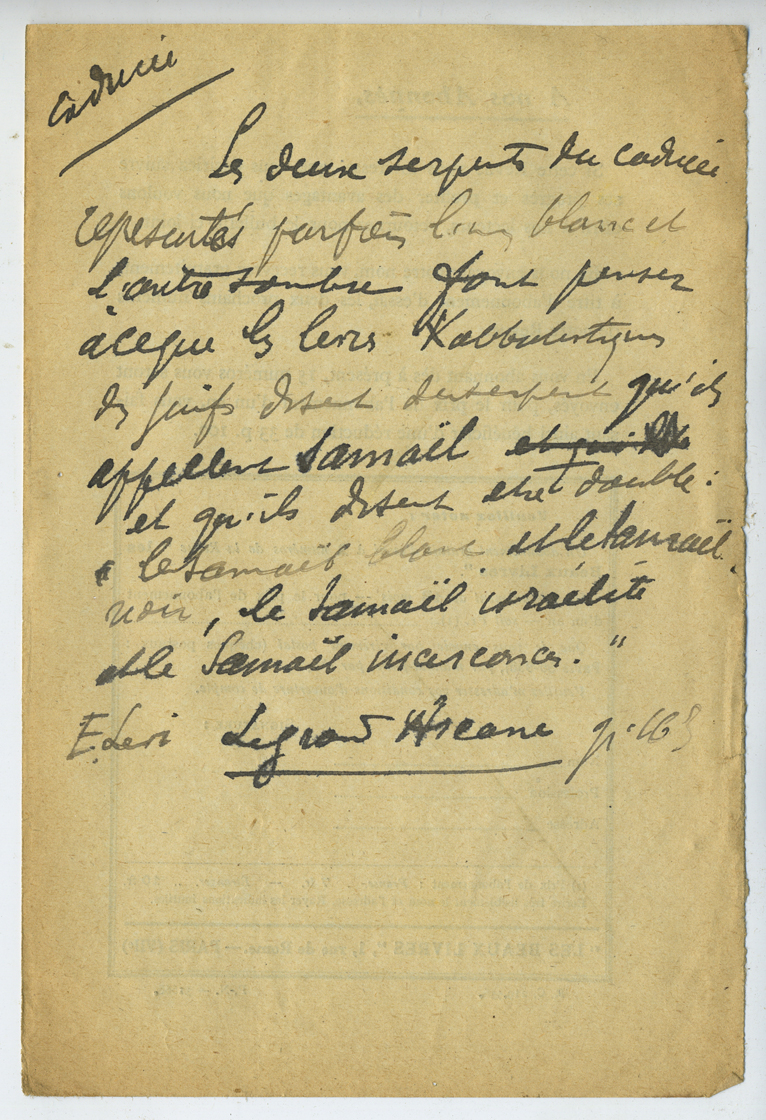 Caducée
Les deux serpents du caducée
représentés parfois l'un blanc et
l'autre sombre font penser
à ce que les livres Kabbalistiques
des juifs disent du serpent qu'ils
appellent Samaël et qui
et qu'ils disent être double :
" le Samaël blanc et le Samaël
noir, le Samaël israélite
et le Samaël incirconcis. "
E. Levi Le grand Arcane p. 165